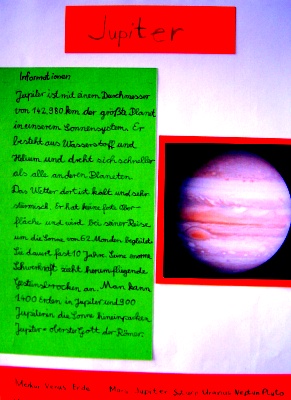 Jupiter
Informationen
Jupiter ist mit einem Durchmesser
von 142.980 km der größte Planet
in unserem Sonnensystem. Er
besteht aus Wasserstoff und
Helium und dreht sich schneller
als alle anderen Planeten.
Das Wetter dort ist kalt und sehr
stürmisch. Er hat keine feste Ober-
fläche und wird bei seiner Reise
um die Sonne von 62 Monden begleitet.
Sie dauert fast 10 Jahre. Seine enorme
Schwerkraft zieht herumfliegende
Gesteinsbrocken an. Man kann
1400 Erden in Jupiter und 900
Jupiter in die Sonne hineinpacken.
Jupiter = oberster Gott der Römer.
Merkur Venus Erde Mars Jupiter Saturn Uranus Neptun Pluto